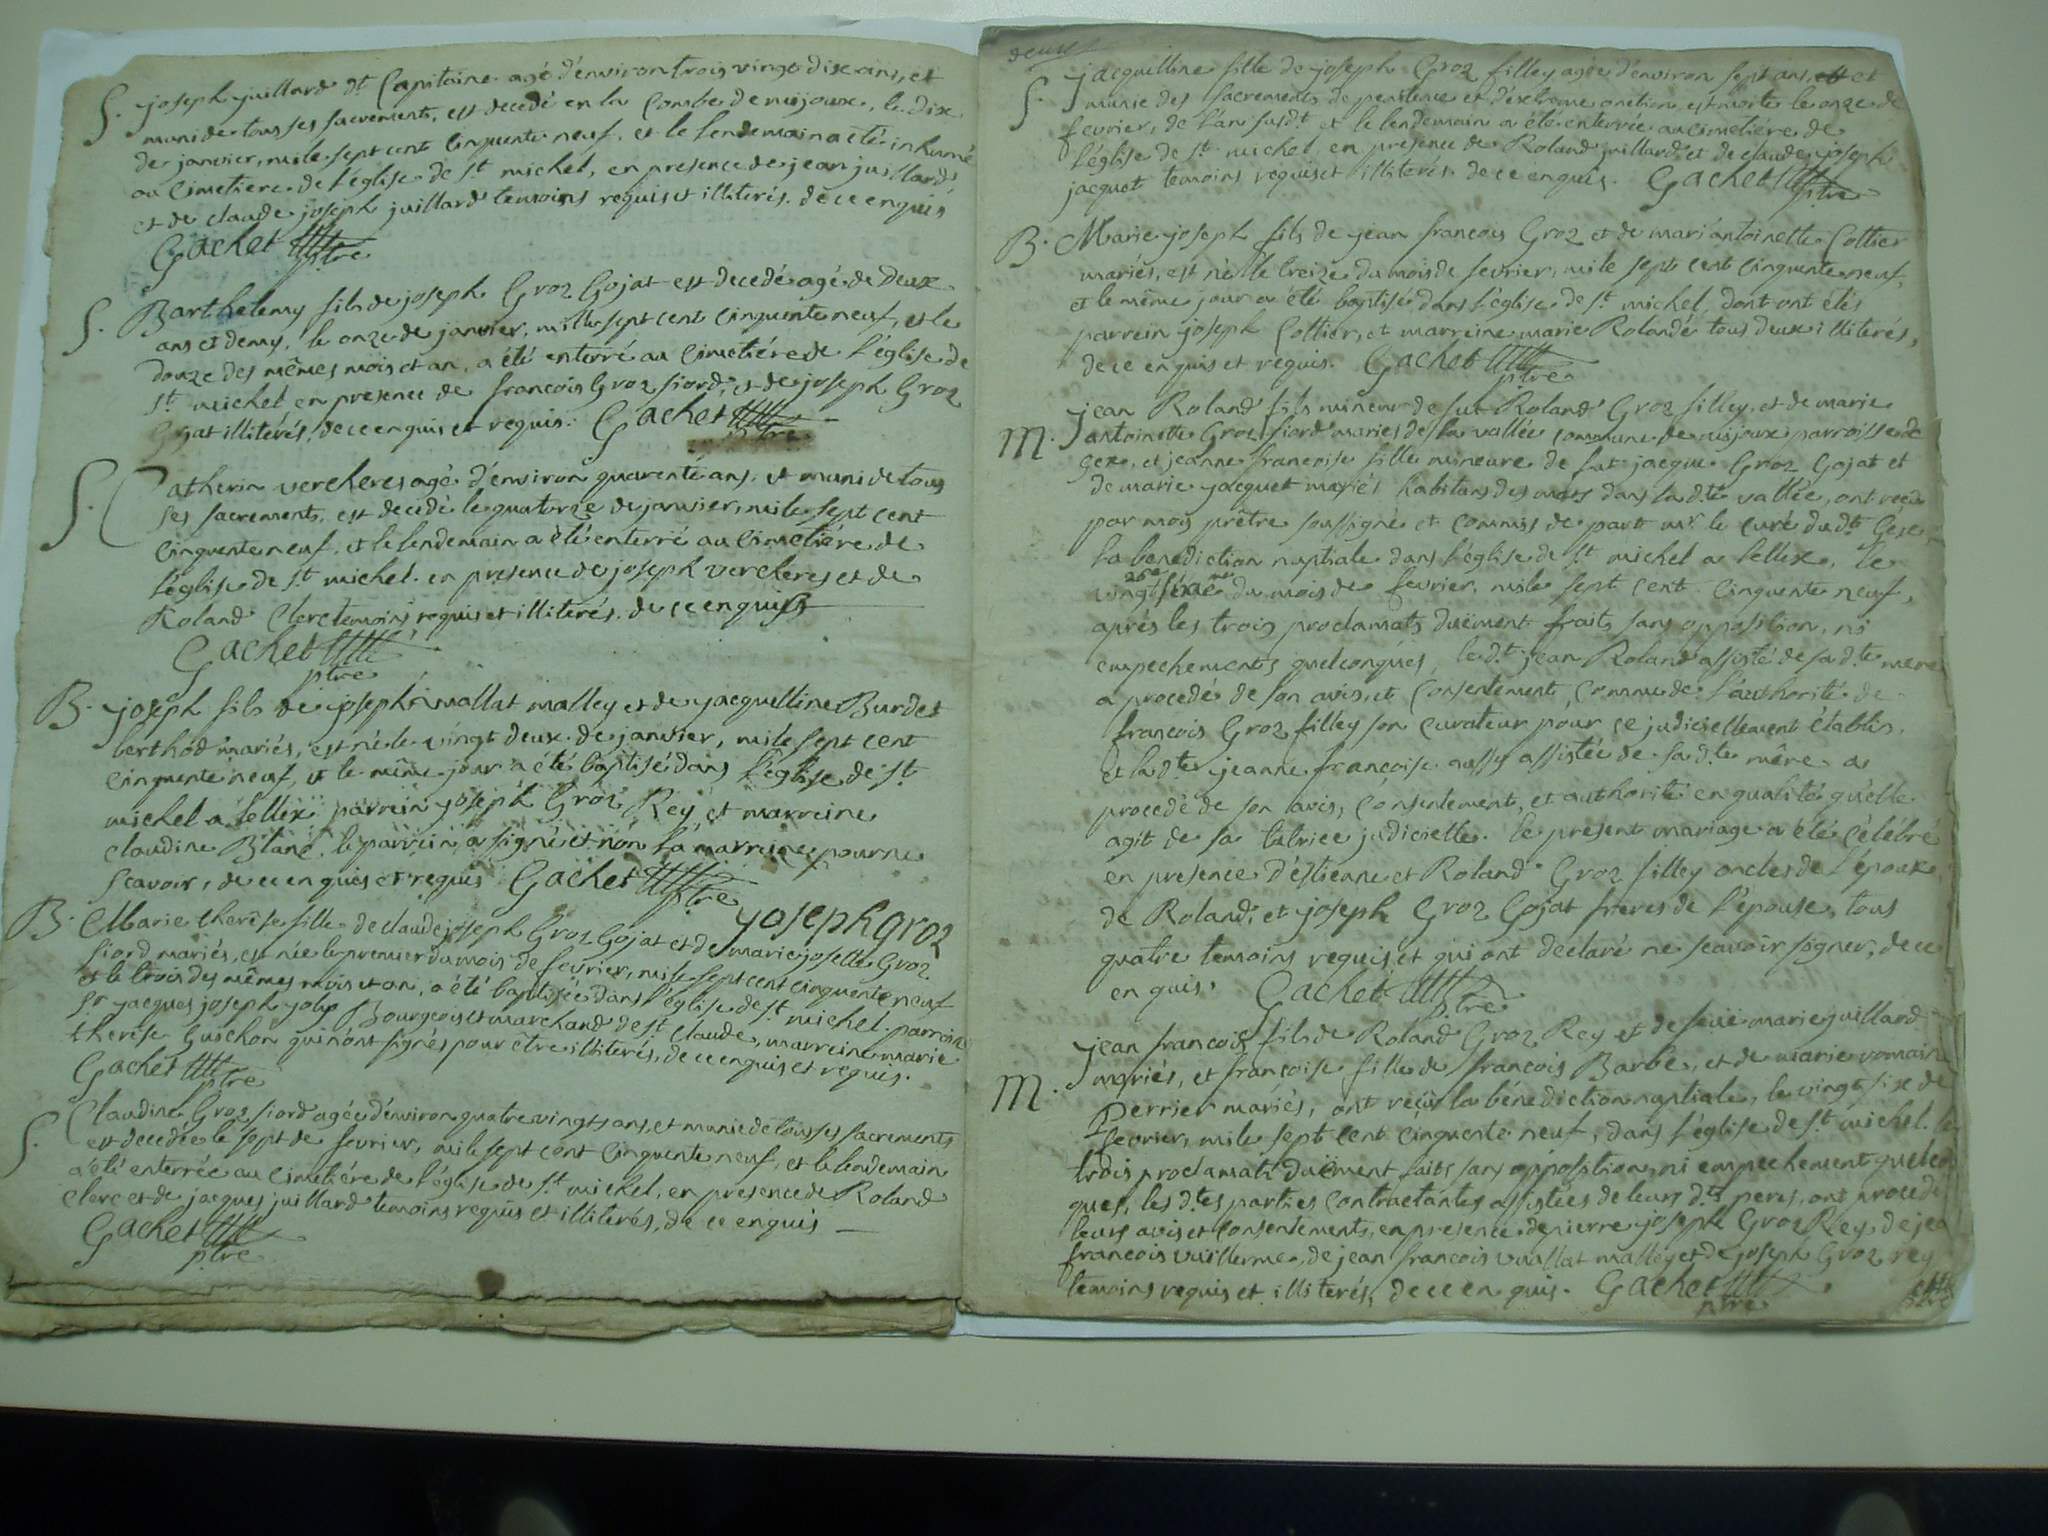 S. joseph juillard d.t Capitaine agé d'environ trois vingt dix ans, et
muni de tous ses sacrements, est decedé en la Combe de mijoux, le dix
de janvier, mile sept cent cinquente neuf, et le lendemain a été inhumé
au Cimetiere de l'église de s.t michel, en presence de jean juillard
et de claude joseph juillard temoins requis et illiterés. de ce enquis
Gachet
ptre
S. Barthelemy fils de joseph Groz Gojat est decedé agé de deux
ans et demy, le onze de janvier, mille sept cent cinquente neuf, et le
douze des mêmes mois et an, a été enterré au cimetiére de l'église de
s.t michel en presence de francois Groz siord, et de joseph Groz
Gojat illiterés, de ce enquis et requis. Gachet
ptre
S. Catherin vercheres agé d'environ quarente ans, et muni de tous
ses sacrements, est decédé le quatorze de janvier, mile sept cent
cinquente neuf, et le lendemain a été enterré au cimetiére de
l'église de s.t michel. en presence de joseph vercheres et de
Roland Clerc temoins requis et illiterés. de ce enquis
Gachet
ptre
B. joseph fils de joseph vuallat malley et de jacquelline Burdet
berthod mariés, est né le vingt deux de janvier, mile sept cent
cinquente neuf, et le même jour a été baptisé dans l'église de s.t
michel a lellex parrein joseph Groz Rey, et marreine
claudine Blanc. le parrein a signé et non la marreine pour ne
scavoir, de ce enquis et requis Gachet
ptre
joseph groz
B. Marie therese fille de claude joseph Groz Gojat et de marie josette Groz
siord mariés, est née le premier du mois de fevrier, mile sept cent cinquente neuf
et le trois des mêmes mois et an, a été baptisée dans l'église de s.t michel. parrein
s.r jacques joseph joly Bourgeois et marchand de s.t claude, marreine marie
therese Guichon qui n'ont signés pour être illiterés, de ce enquis et requis.
Gachet
ptre
S. Claudine Groz siord agée d'environ quatre vingts ans, et munie de tous ses sacrements
est decedée le sept de fevrier, mile sept cent cinquente neuf, et le lendemain
a été enterrée au cimetiére de l'église de s.t michel, en presence de Roland
Clerc et de jacques juillard temoins requis et illiterés, de ce enquis
Gachet
ptre
deux
S. jacquelline fille de joseph Groz filley agée d'environ sept ans, et
munie des sacrements de penitence et d'extreme onction, est morte le onze de
fevrier, de l'an susd.t et le lendemain a été enterrée au cimetiére de
l'église de s.t michel, en presence de Roland juillard et de claude joseph
jacquet temoins requis et illiterés de ce enquis. Gachet
ptre
B. Marie joseph fils de jean francois Groz et de mari antoinette Cottier
mariés, est né le treize du mois de fevrier, mile sept cent cinquente neuf,
et le même jour a été baptisé dans l'église de s.t michel, dont ont étés
parrein joseph Cottier, et marreine marie Rolande tous deux illiterés,
de ce enquis et requis. Gachet
ptre
M. jean Roland fils mineur de fut Roland Groz filley, et de marie
antoinette Groz siord mariés de la vallée commune de mijoux parroisse de
Gex, et jeanne francoise fille mineure de fut jacque Groz Gojat et
de marie jacquet mariés habitans des mars dans la d.te vallée, ont reçu
par mois prêtre soussigné et commis de part m.r le curé du d.t Gex
la benediction nuptiale dans l'église de s.t michel a lellex, le
26e
vingt sixe du mois de fevrier, mile sept cent cinquente neuf,
aprés les trois proclamats duëment fraits sans opposition, ni
empechements quelconques, le d.t jean Roland assisté de sa d.te mere
a procedé de son avis, et consentement, comme de l'authorité de
francois Groz filley son curateur pour ce judiciellement établis.
et la d.te jeanne francoise aussy assistée de sa d.te mère a
procedé de son avis, consentement, et authorité en qualité qu'elle
agit de sa tutrice judicielle. le present mariage a été célébré
en presence d'estienne et Roland Groz filley oncles de l'epoux,
de Roland, et joseph Groz Gojat freres de l'épouse, tous
quatre temoins requis et qui ont declaré ne scavoir signer, de ce
enquis. Gachet
ptre
M. jean francois fils de Roland Groz Rey et de feue marie juillard
mariés, et francoise fille de francois Barbe, et de marie romain
Perrier mariés, ont reçu la bénédiction nuptiale, le vingt six de
fevrier, mile sept cent cinquente neuf, dans l'église de s.t michel. le
trois proclamats duëment faits sans opposition, ni empechement quelcon
ques, les d.tes parties contractantes assistées de leurs d.ts peres, ont procedé
leurs avis et consentements, en presence de pierre joseph Groz Rey, de jea
francois vuillerme, de jean francois vuallat malley et de joseph Groz rey
temoins requis et illiterés, de ce enquis. Gachet
ptre